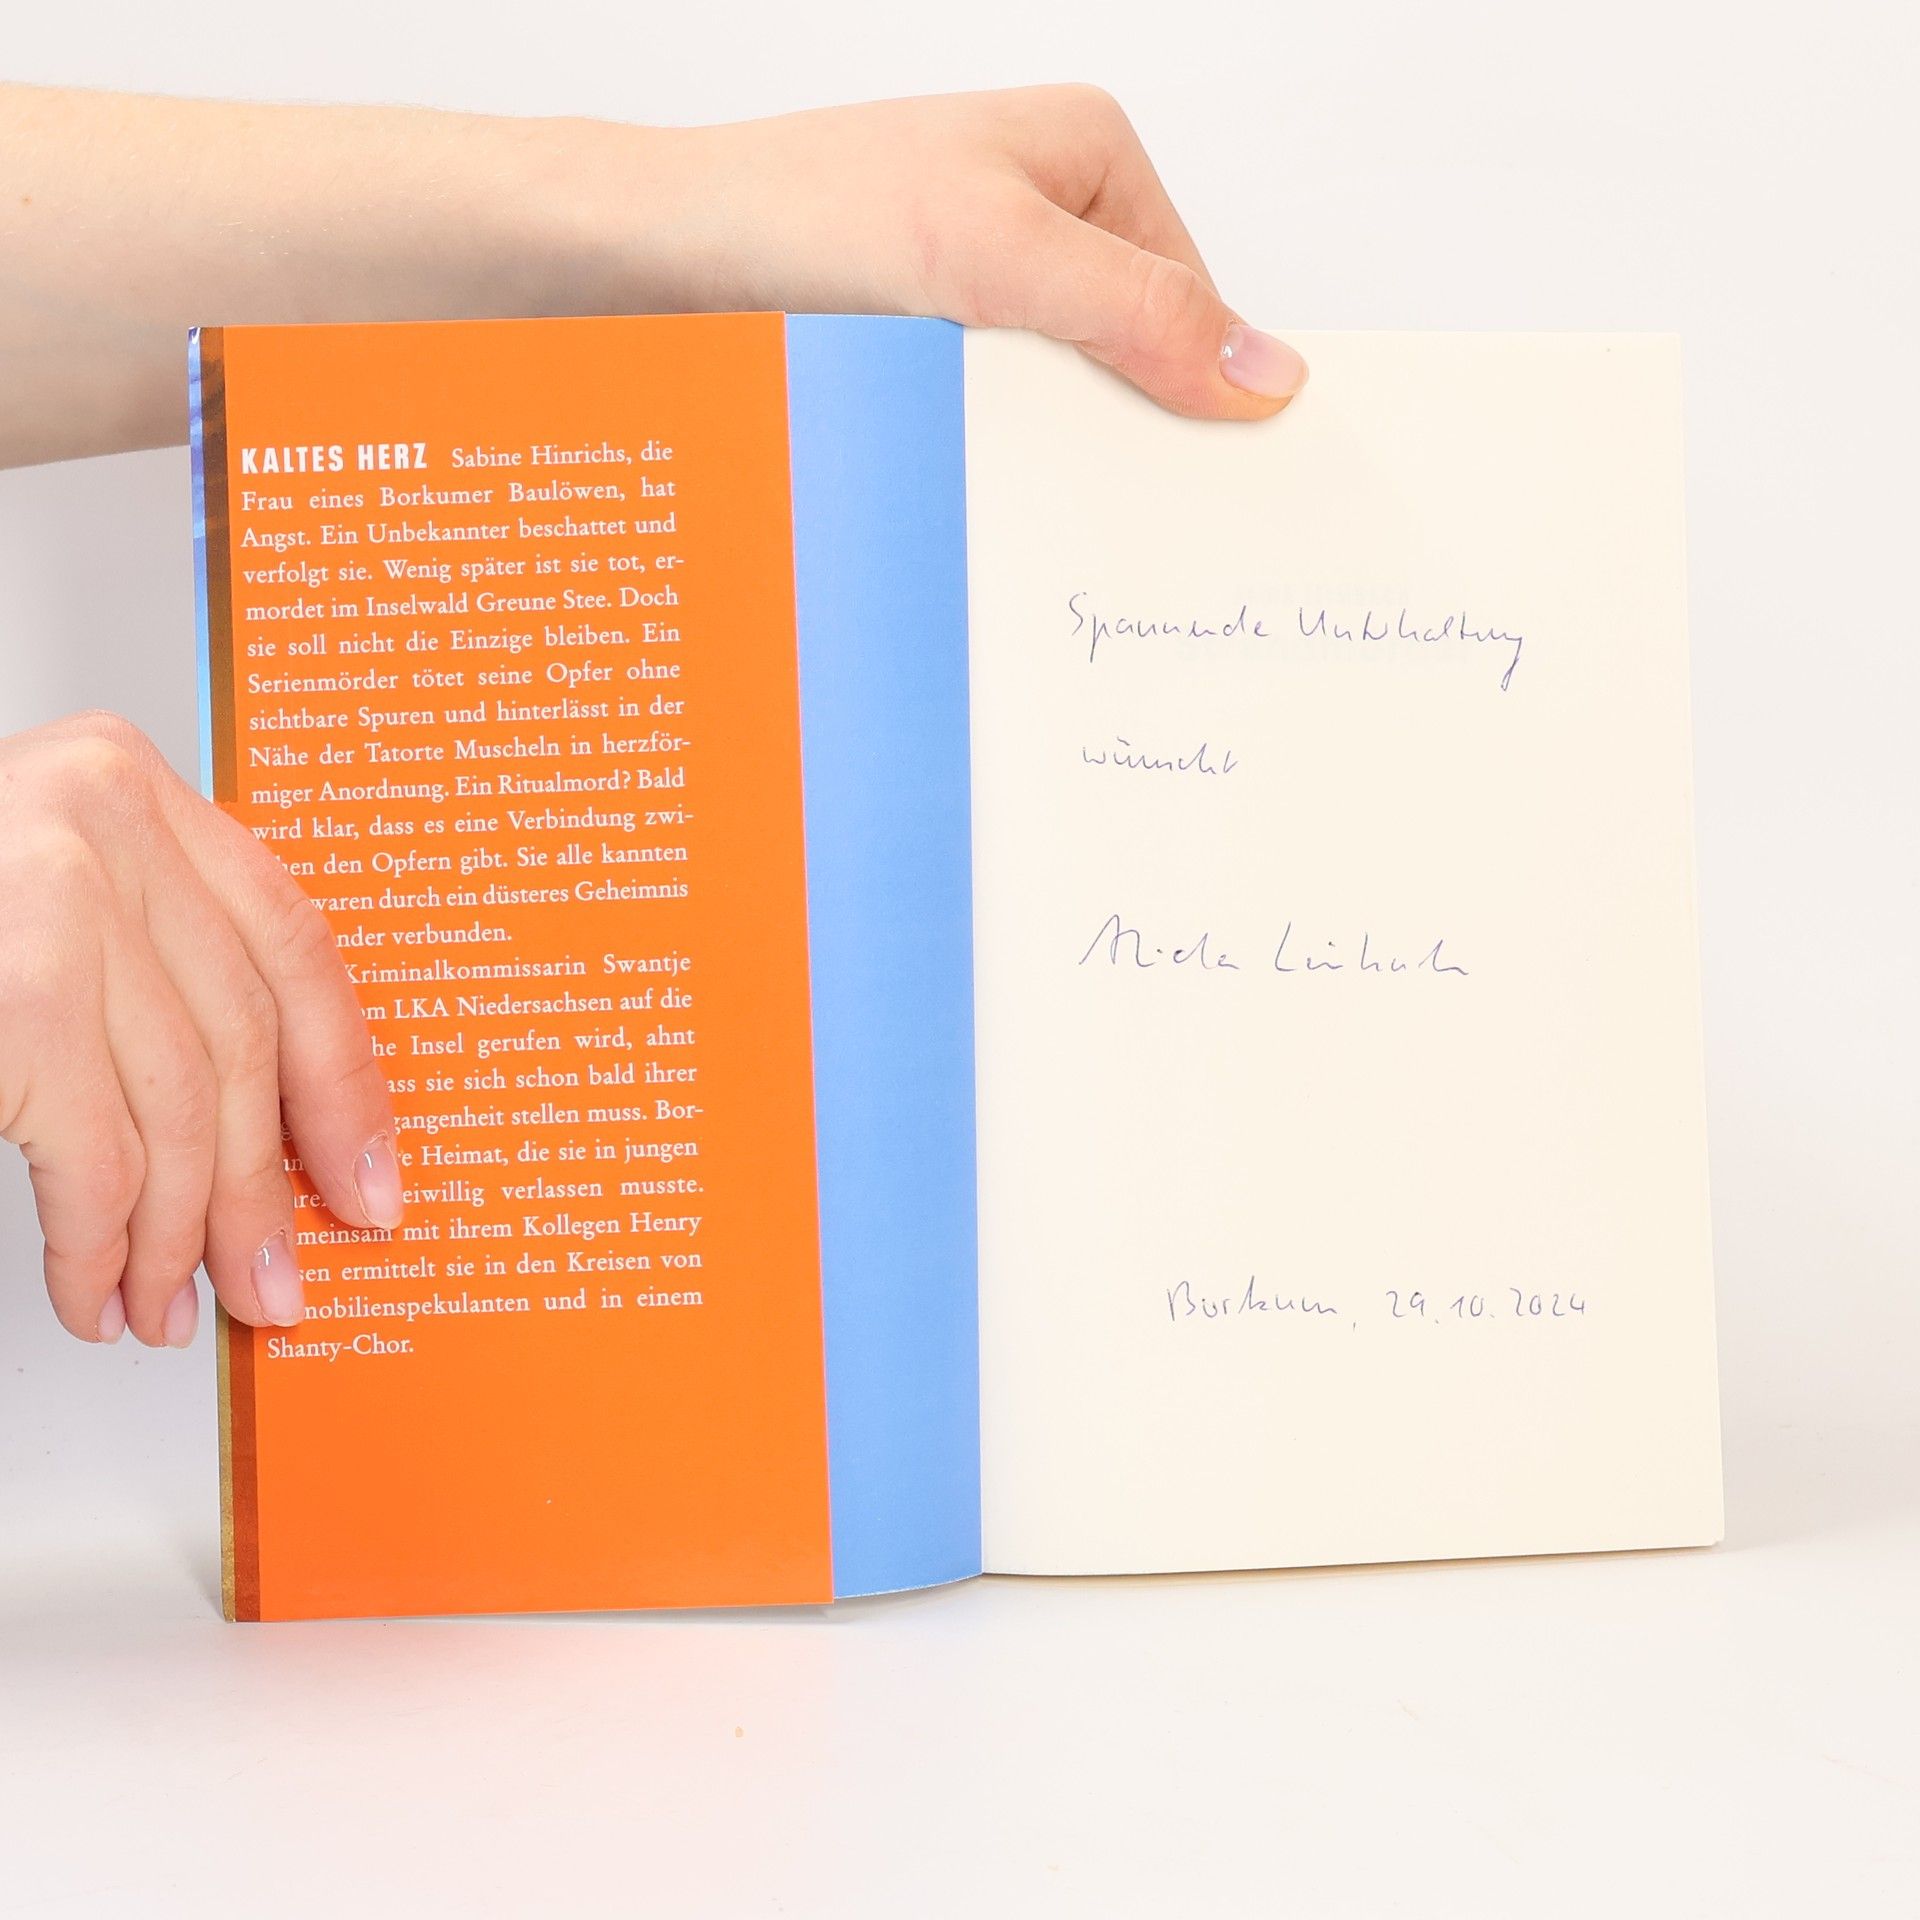 KALTES HERZ Sabine Hinrichs, die
Frau eines Borkumer Baulöwen, hat
Angst. Ein Unbekannter beschattet und
verfolgt sie. Wenig später ist sie tot, er-
mordet im Inselwald Greune Stee. Doch
sie soll nicht die Einzige bleiben. Ein
Serienmörder tötet seine Opfer ohne
sichtbare Spuren und hinterlässt in der
Nähe der Tatorte Muscheln in herzför-
miger Anordnung. Ein Ritualmord? Bald
wird klar, dass es eine Verbindung zwi-
hen den Opfern gibt. Sie alle kannten
waren durch ein düsteres Geheimnis
nder verbunden.
Kriminalkommissarin Swantje
om LKA Niedersachsen auf die
he Insel gerufen wird, ahnt
ass sie sich schon bald ihrer
gangenheit stellen muss. Bor-
e Heimat, die sie in jungen
eiwillig verlassen musste.
meinsam mit ihrem Kollegen Henry
sen ermittelt sie in den Kreisen von
mobilienspekulanten und in einem
Shanty-Chor.
Spannende Unterhaltung
wünscht
Borkum, 29.10.2024